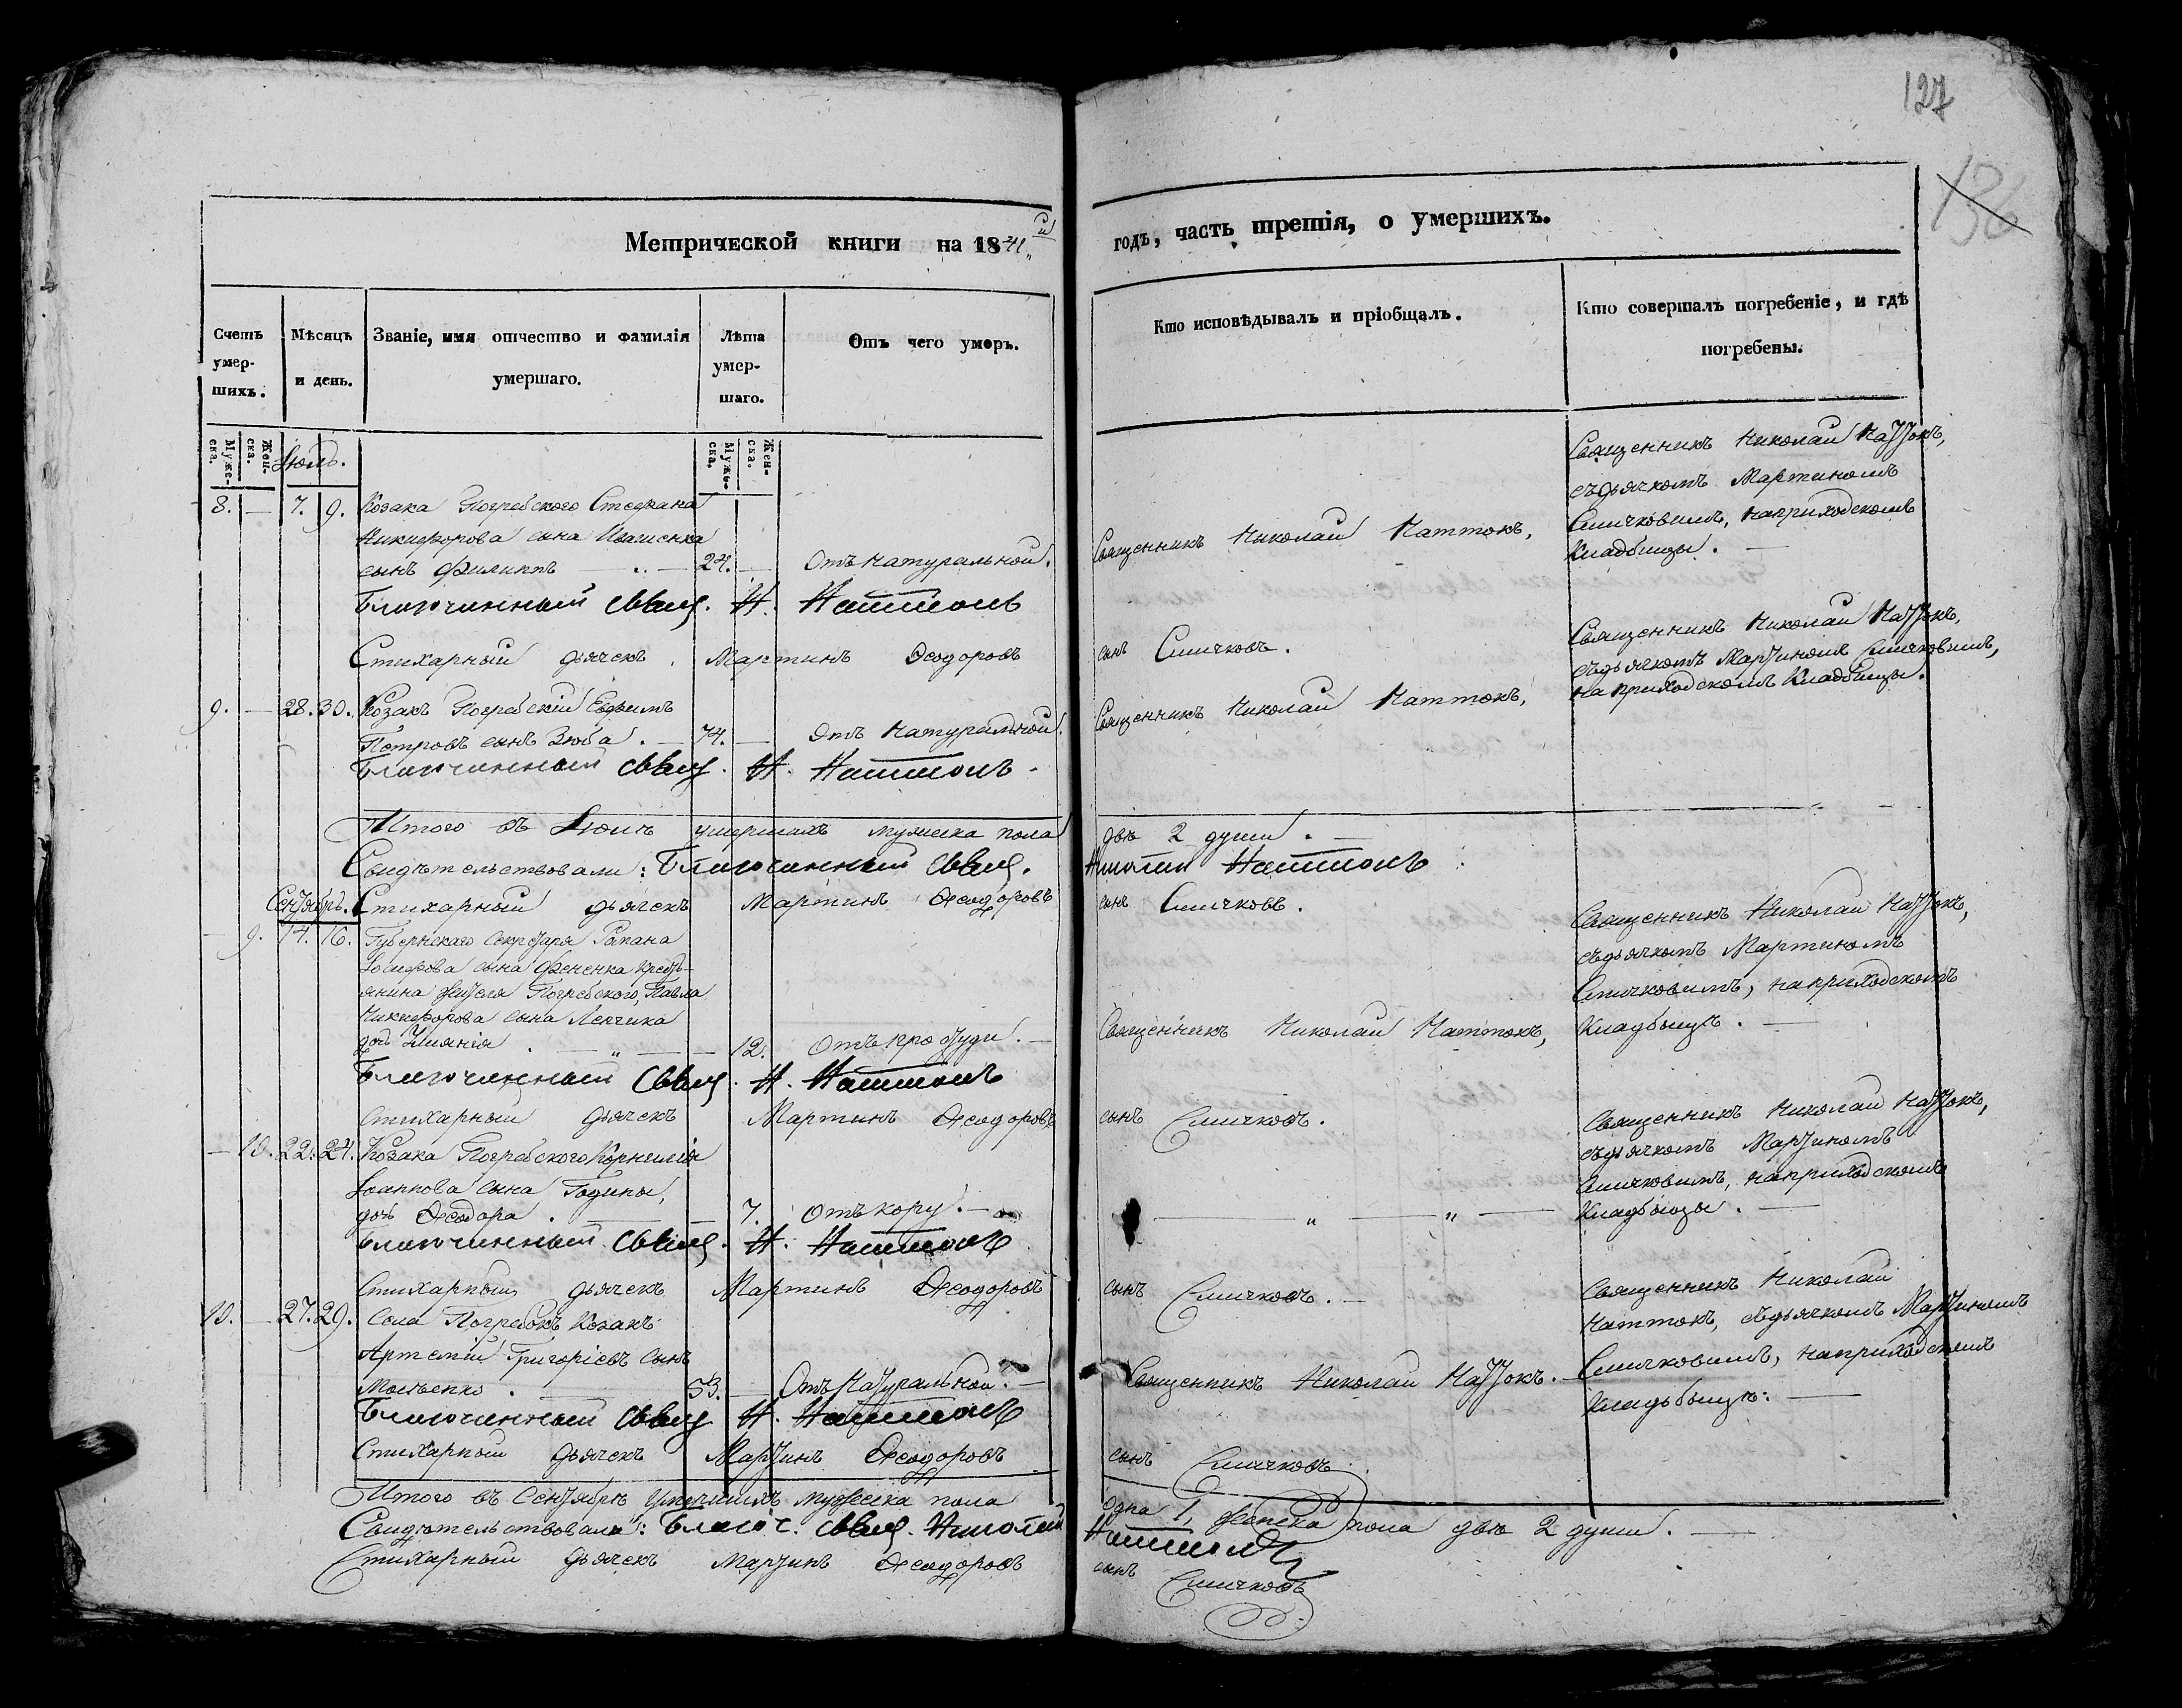 127
132
Метрической книги на 1841 й
годъ, часть третія, о умершихъ.
Счетъ умер-шихъ.
Мѣсяцъ и день.
Званіе, имя отчество и фамилія умершаго.
Лѣта умер-шаго.
Отъ чего умеръ.
Кто исповѣдывалъ и пріобщалъ.
Кто совершалъ погребеніе, и гдѣ погребены.
Муже-ска.
Жен-ска.
Муже-ска.
Жен-ска.
8. — 7. 9. Козака Погребского Стефана
Никифорова сына
сынъ Филиппъ — 24. — Отъ натуральной.
Священникъ Николай Натток,
Священникъ Николай Наттокъ,
съдьячкомъ Мартиномъ
Смичковимъ, наприходскомъ
Кладбищы. —
Благочинный Свящ. Н. Наттокъ
Стихарный дьячекъ Мартинъ Ѳеодоровъ
сынъ Смичковъ.
9. — 28. 30. Козакъ Погребскій Евфимъ
Петровъ сынъ Зюба. — 74. — Отъ натуральной.
Священникъ Николай Наттокъ,
Священникъ Николай Наттокъ,
съдьячкомъ Мартиномъ Смичковимъ,
на приходскомъ Кладбищы.
Благочинный Свящ. Н. Наттокъ.
Итого въ умершихъ мужеска пола
двѣ 2 души. —
Свидѣтельствовали: Благочинный Свящ.
Николай Наттокъ
Стихарный дьячекъ Мартинъ Ѳеодоровъ
сынъ Смичковъ.
Сентябрь.
— 9. 14. 16. Губернскаго Секретаря Романа
Іосифова сына Фененка крестъ-
янина жителя Погребского, Павла
Никифорова сына Ленчика
дочь — " — 12. Отъ простуди. —
Священникъ Николай Наттокъ,
Священникъ Николай Наттокъ,
съдьячкомъ Мартиномъ
Смичковимъ, наприходскомъ
Кладбищѣ. —
Благочинный Свящ. Н. Наттокъ
Стихарный дьячекъ Мартинъ Ѳеодоровъ
сынъ Смичковъ.
— 10. 22. 24. Козака Погребского Корнилія
Іоаннова сына Годины,
дочь Ѳеодора. — 7. Отъ кору. —
— " — " —
Священникъ Николай Наттокъ,
съдьячкомъ Мартиномъ
Смичковимъ, наприходскомъ
Кладбищы. —
Благочинный Свящ. Н. Наттокъ
Стихарный дьячекъ Мартинъ Ѳеодоровъ
сынъ Смичковъ. —
10. — 27. 29. Села Погребокъ Козакъ
Артемій Григоріевъ сынъ
53. — Отъ Натуральной. —
Священникъ Николай Наттокъ. —
Священникъ Николай
Наттокъ, съдьячкомъ Мартиномъ
Смичковимъ, наприходскомъ
Кладьбищѣ. —
Благочинный Свящ. Н. Наттокъ
Стихарный дьячекъ Мартинъ Ѳеодоровъ
сынъ Смичковъ.
Итого въ Сентябрѣ умершихъ мужеска пола
одна 1, женска пола двѣ 2 души. —
Свидѣтельствовали: Благоч. Свящ. Николай
Наттокъ
Стихарный дьячекъ Мартинъ Ѳеодоровъ
сынъ Смичковъ